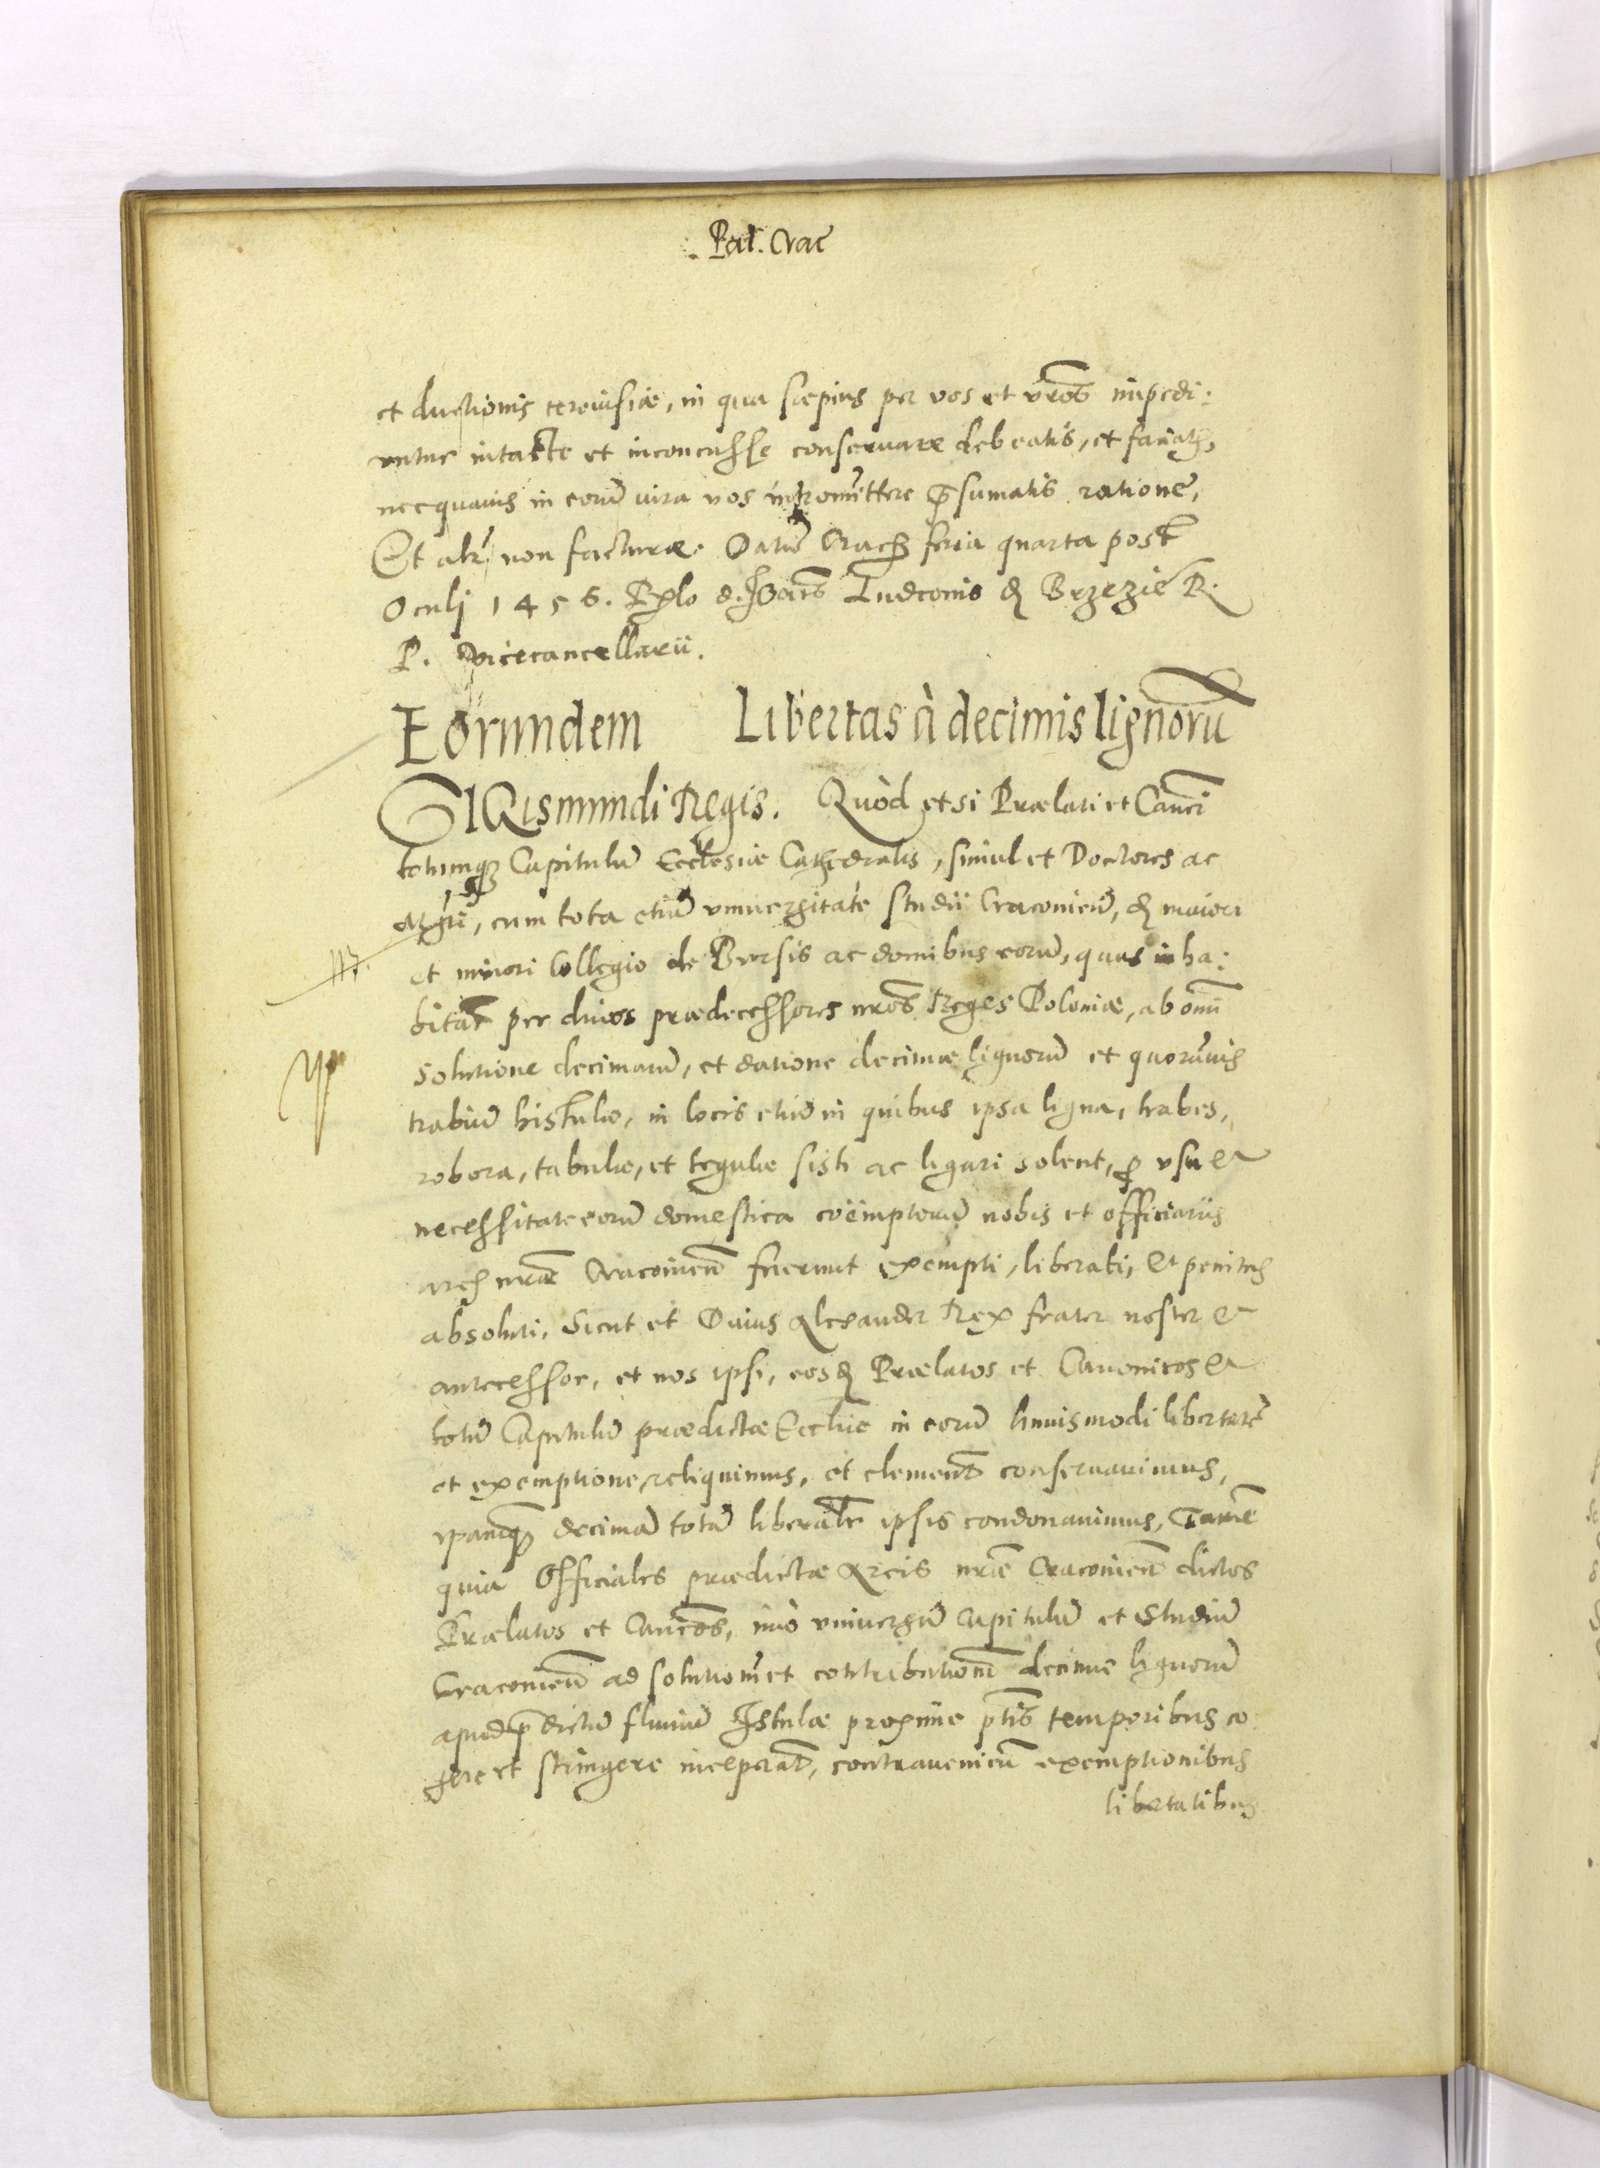 Pal. Crac
et ductionis cerevisiae, in qua saepius per vos et vros impedi:
untur intacte et inconcusse conservare debeatis, et faciatis,
necquavis in eorum iura vos intromittere praesumatis ratione,
Et alr non facturae. Datum Crac feria quarta post
Oculi 1456. Rlo d. Joanis Ludconis de Brzezie R.
P. Vicecancellarii.
Eorundem Libertas à decimis lignorū
SIGismundi Regis. Quòd etsi Praelati et Canci
totumq Capitulū Ecclesiae Cathedralis, simul et Doctores ac
Mgri, cum tota etiā universitate studii Craconien, de maiori
et minori Collegio de Bursis ac domibus eorū, quas inha:
bitāt per divos praedecessores nros Reges Poloniae, ab omni
solutione decimarū, et datione decimae lignorū et quorūvis
trabiū histulae, in locis etiā in quibus ipsa ligna, trabes,
robora, tabulae, et tegulae sisti ac ligari solent, p usu et
necessitate eorū domestica coëmptorū nobis et officiariis
arcis nrae Craconien fuerunt exempti, liberati, et penitus
absoluti, Sicut et Divus Alexander Rex frater noster et
antecessor, et nos ipsi, eosdē Praelatos et Canonicos et
totū Capitulū praedictae Eccliae in eorū huiusmodi libertate
et exemptione reliquimus, et clementr conservavimus,
ipamq decimā totā liberalr ipsis condonavimus, Tamē
quia Officiales praedictae Arcis nrae Craconien dictos
Praelatos et Cancos, imò universū Capitulū et Studiū
Craconien ad solutionē et contributionē decimae lignorū
apud pdictū fluviū Istulae proxime ptis temporibus co
gere et stringere inceperāt, contravenien exemptionibus
libertatibus